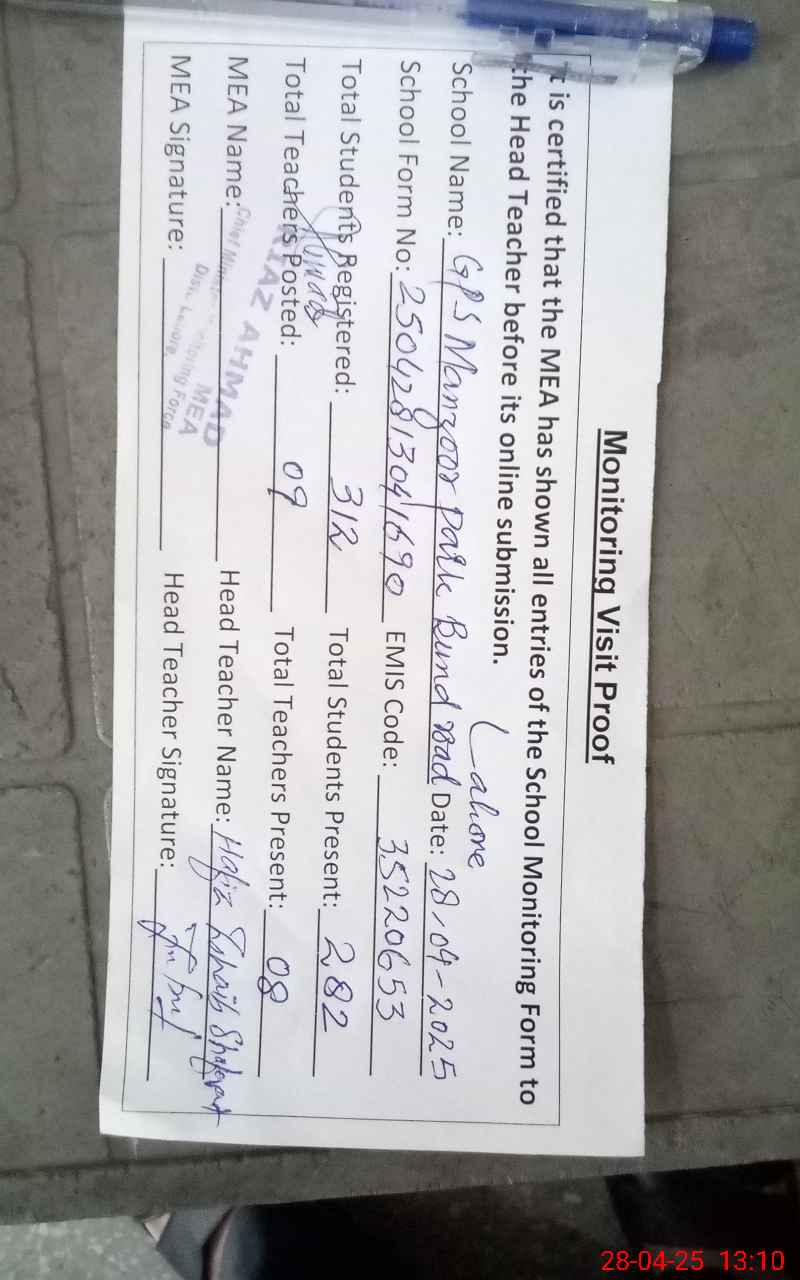 Monitoring Visit Proof
It is certified that the MEA has shown all entries of the School Monitoring Form to
the Head Teacher before its online submission.
Lahore
School Name: GPS Manzoor park Bund road Date: 28-04-2025
School Form No: 25042813041690 EMIS Code: 35220653
Total Students Registered: 312 Total Students Present: 282
Total Teachers Posted: 09 Total Teachers Present: 08
MEA Name: RIAZ AHMAD Head Teacher Name: Hafiz
MEA
Chief Monitoring Force
Distt. Lahore.
MEA Signature: Head Teacher Signature:
28-04-25 13:10